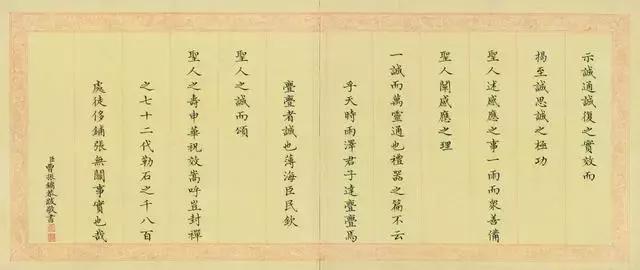 示誠通誠復之實效而
揭至誠思誠之極功
聖人述感應之事一雨而衆善備
聖人闡感應之理
一誠而萬靈通也禮器之篇不云
乎天時雨澤君子達亹亹焉
亹亹者誠也薄海臣民欽
聖人之誠而頌
聖人之壽申華祝效嵩呼豈封禪
之七十二代勒石之千八百
處徒侈鋪張無關事實也哉
臣曹振鏞恭跋敬書